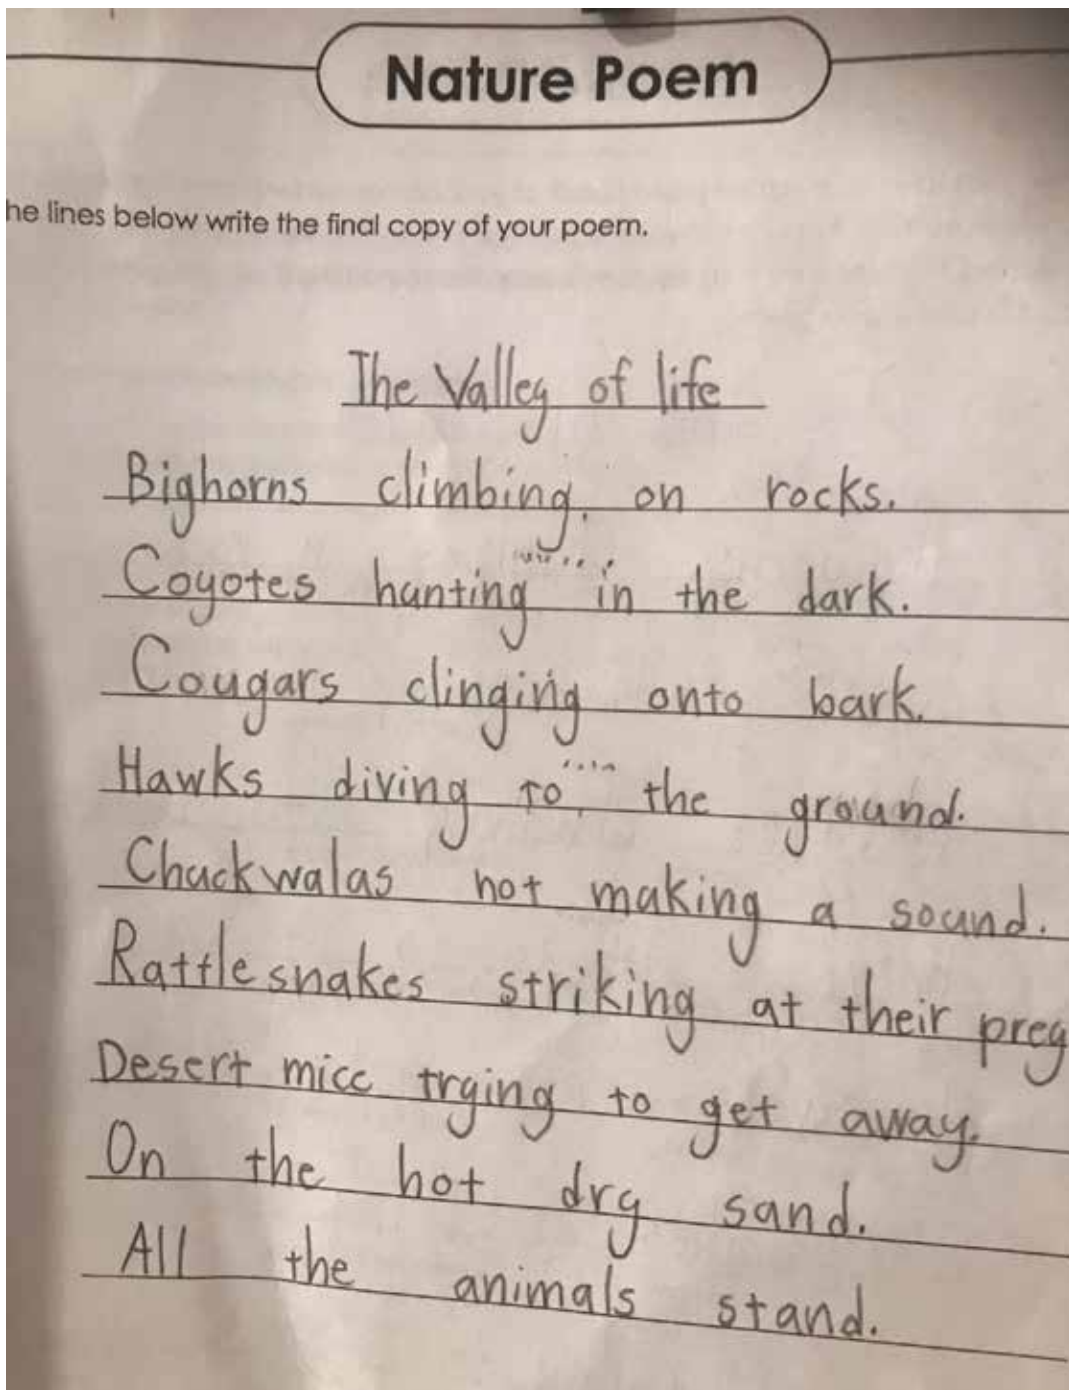 Nature Poem
he lines below write the final copy of your poem.
The Valley of life
Bighorns climbing on rocks.
Coyotes hunting in the dark.
Cougars clinging onto bark.
Hawks diving to the ground.
Chuckwalas not making a sound.
Rattlesnakes striking at their prey
Desert mice trying to get away.
On the hot dry sand.
All the animals stand.